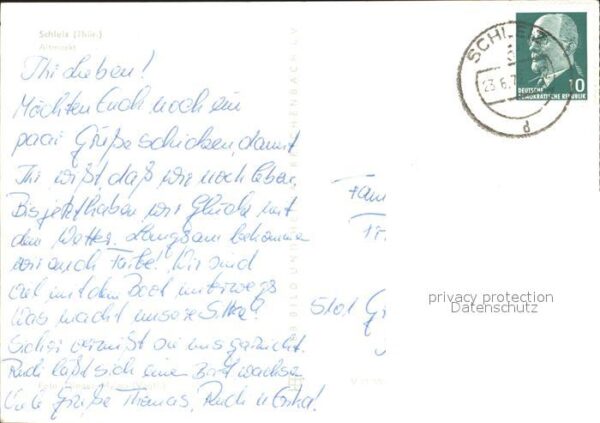 Schleiz (Thür.)
Altmarkt
Ihr Lieben!
Möchten Euch noch ein
paar Grüße schicken, damit
Ihr wißt, daß wir noch leben.
Bis jetzt haben wir Glück mit
dem Wetter. Langsam bekommen
wir auch Farbe! Wir sind
viel mit dem Boot unterwegs
Was macht unsere
vermißt sie uns gar nicht.
Rudi läßt sich einen Bart wachsen
Viele Grüße Thomas, Rudi u.
Fam
17
5101 G
SCHLEIZ
23.6.7
d
DEUTSCHE
DEMOKRATISCHE REPUBLIK
10
privacy protection
Datenschutz